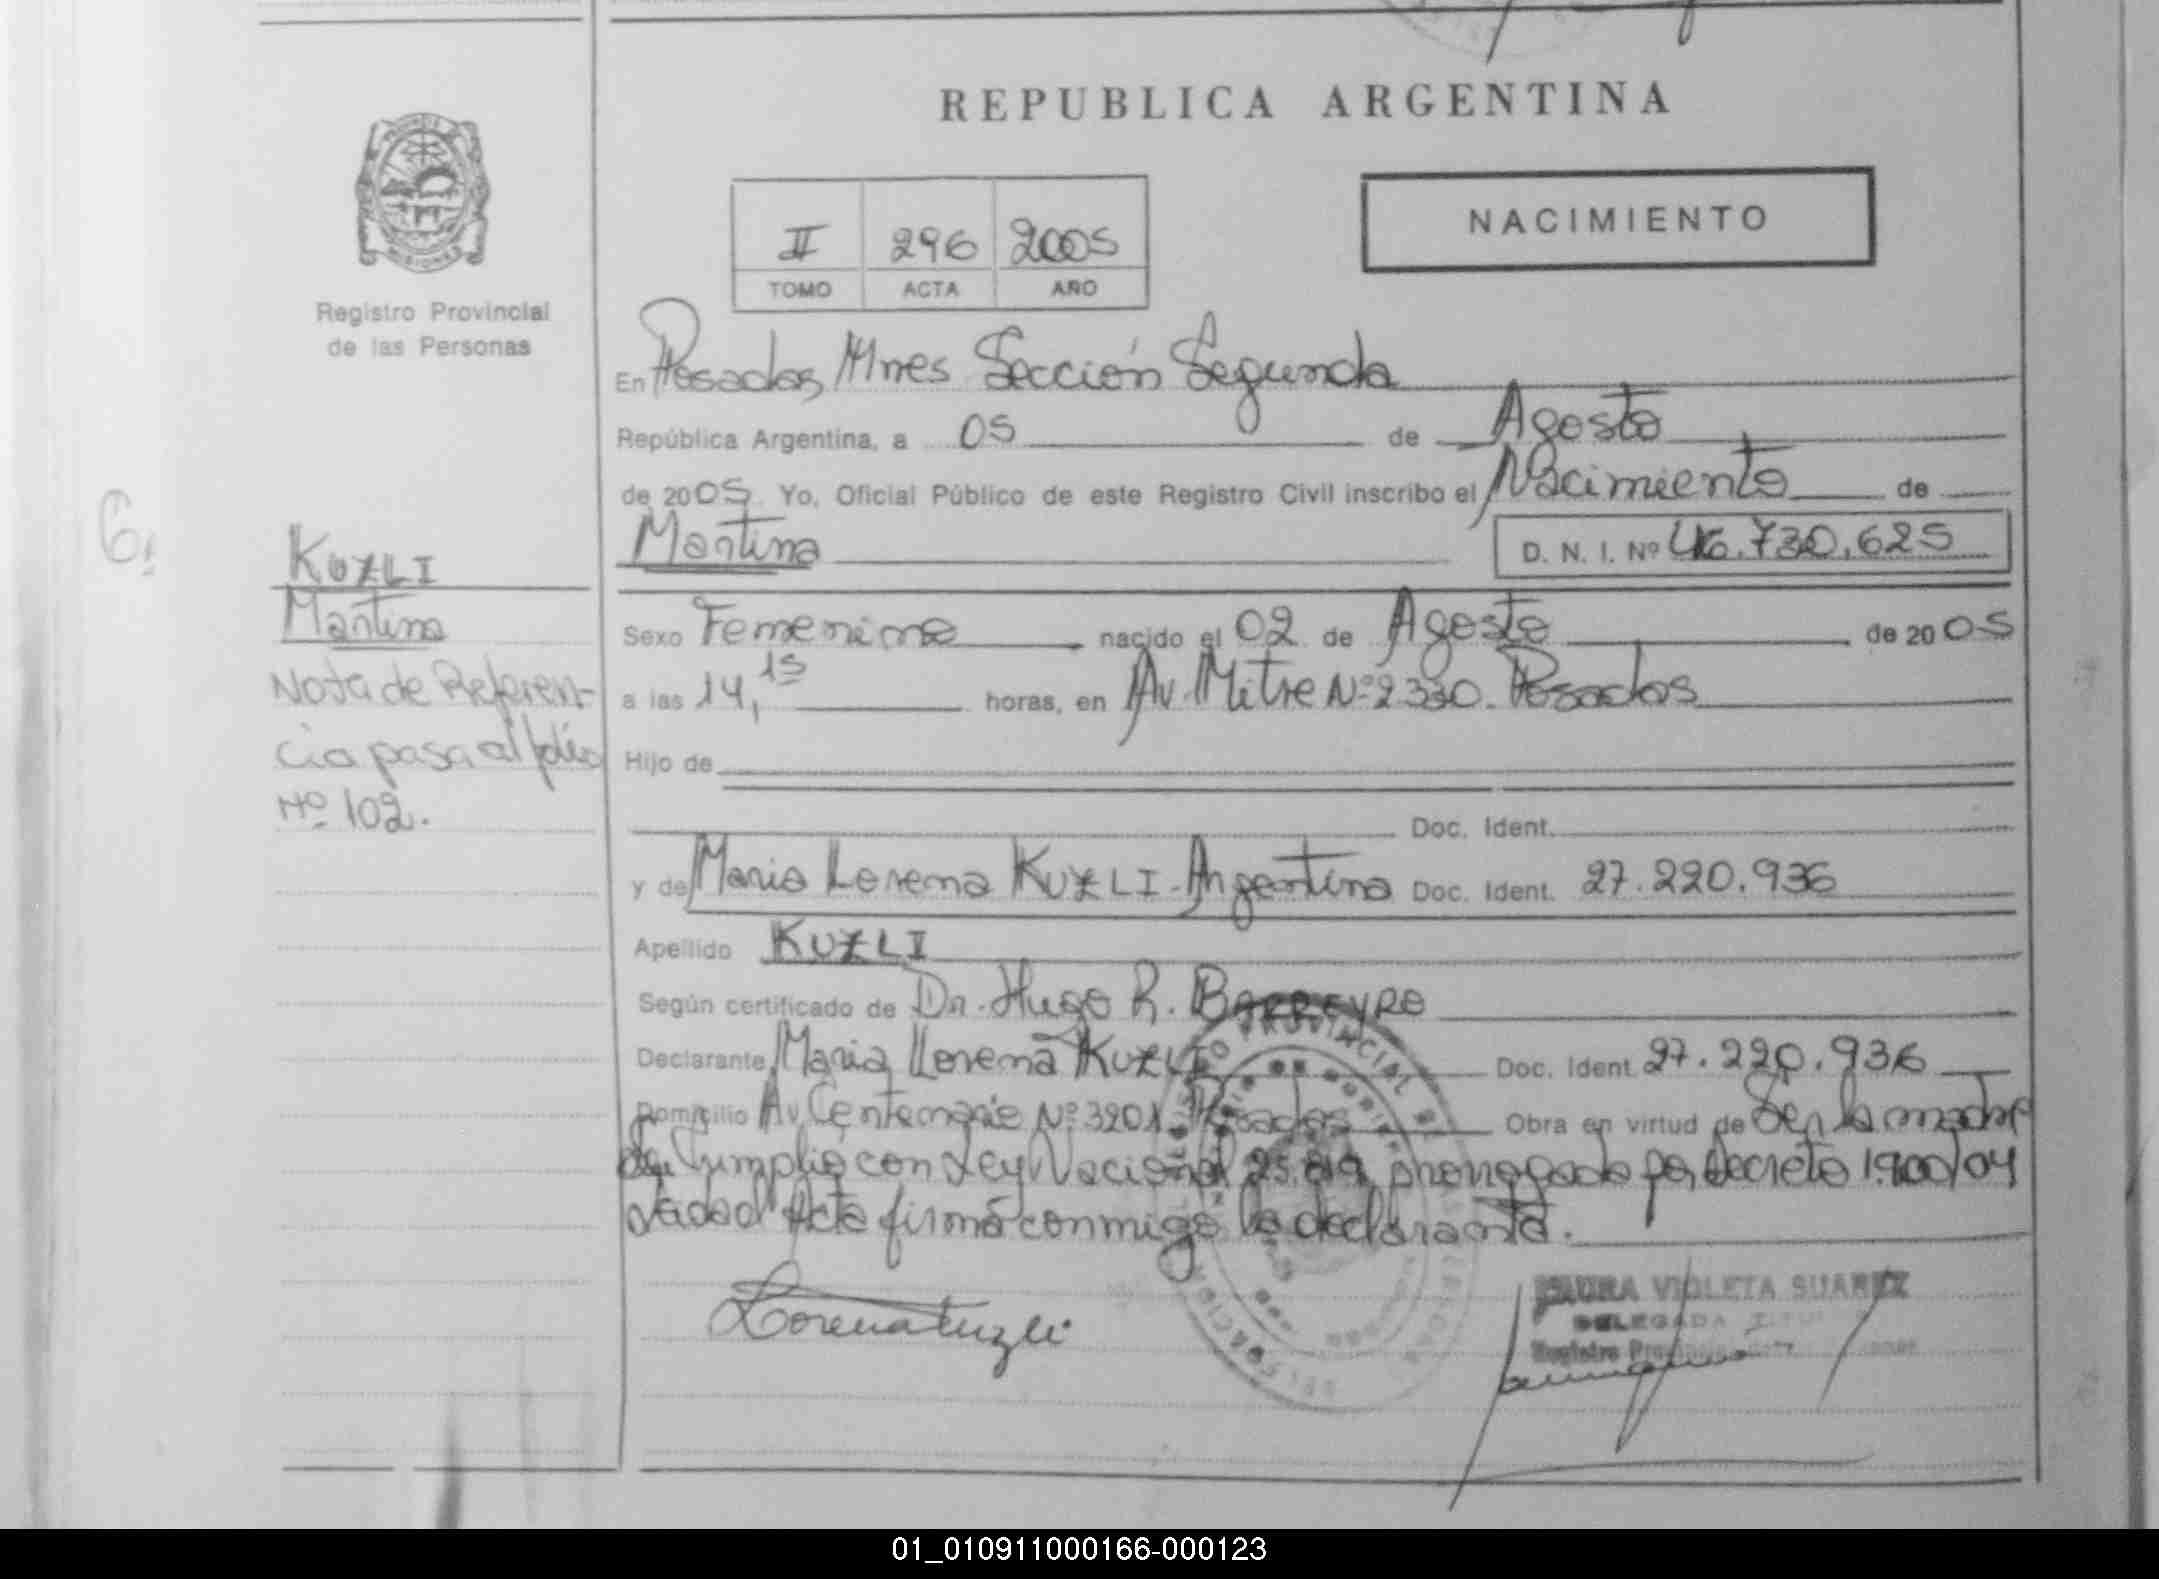 REPUBLICA ARGENTINA
NACIMIENTO
II 296 2005
TOMO ACTA AÑO
Registro Provincial
de las Personas
En Posadas, Mnes Sección Segunda
República Argentina, a 05 de Agosto
de 2005. Yo, Oficial Público de este Registro Civil inscribo el Nacimiento de
Martina D. N. I. Nº 46.730.625
Sexo Femenino nacido el 02 de Agosto de 2005
a las 14,15 horas, en Av. Mitre Nº 2330. Posadas
Hijo de
Doc. Ident.
y de Maria Lorena KUZLI - Argentina Doc. Ident. 27.220.936
Apellido KUZLI
Según certificado de Dr. Hugo R. BARREYRO
Declarante Maria Lorena KUZLI Doc. Ident. 27.220.936
Domicilio Av. Centenario Nº 3201 Posadas Obra en virtud de Ser la madre
Cumplió con Ley Nacional 25.819 prorrogada por decreto 1.900/04
Leída el Acta firma conmigo la declarante.
Lorena Kuzli
LAURA VIOLETA SUAREZ
DELEGADA
Registro
KUZLI
Martina
Nota de Referen-
cia pasa al folio
Nº 102.
PROVINCIAL
01_010911000166-000123